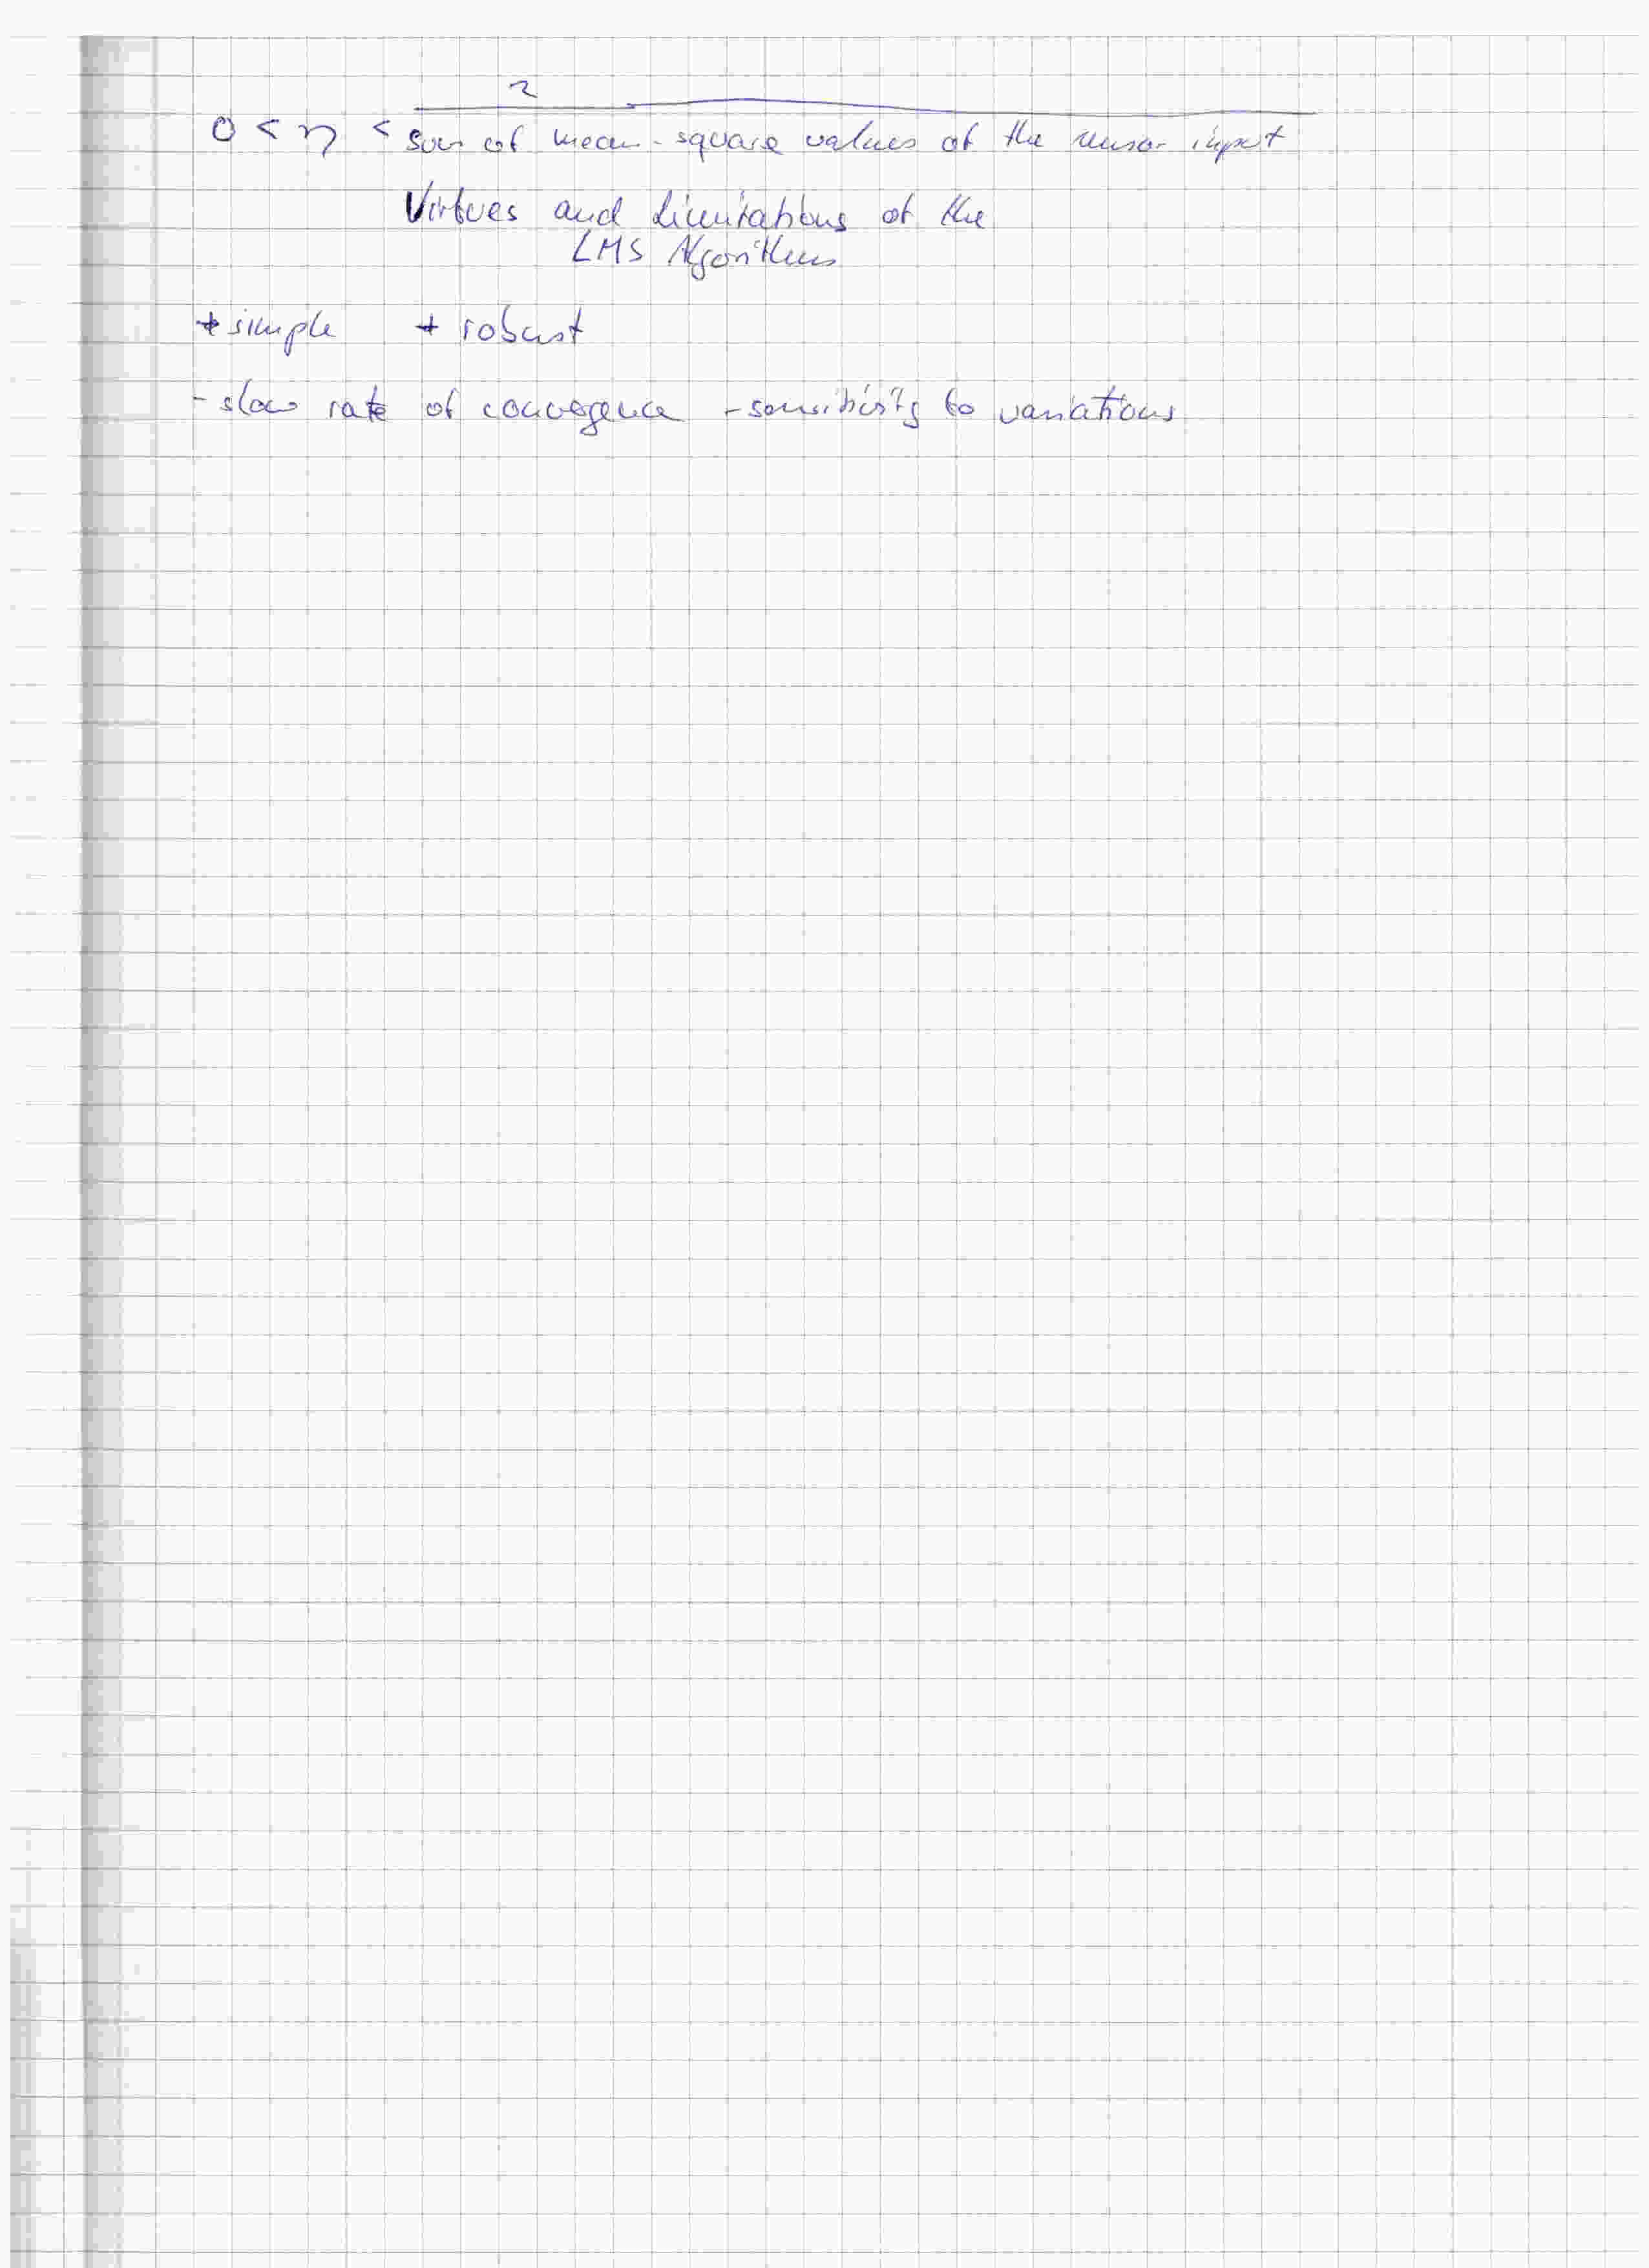 0 < η < 2 / sum of mean-square values of the sensor input
Virtues and Limitations of the
LMS Algorithms
+ simple + robust
- slow rate of convergence - sensitivity to variations